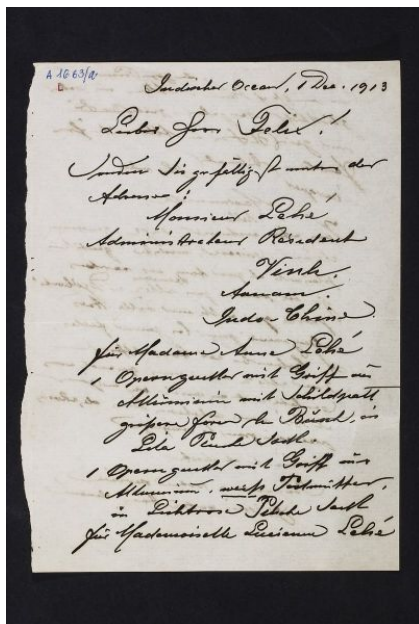 A 1663/a
Indischer Ocean, 1 Dec. 1913
Lieber Herr Felix!
Senden Sie gefälligst unter der
Adresse:
Monsieur Lehé
Administrateur Résident
Vinh.
Annam.
Indo-Chine
für Madame Anna Lehé
1 Operngucker mit Griff in
Alluminium mit Schildpatt
große Form in
Lila
1 Operngucker mit Griff aus
Alluminium, weiß Perlmutter,
in Lichtrosa
für Mademoiselle Lucienne Lehé